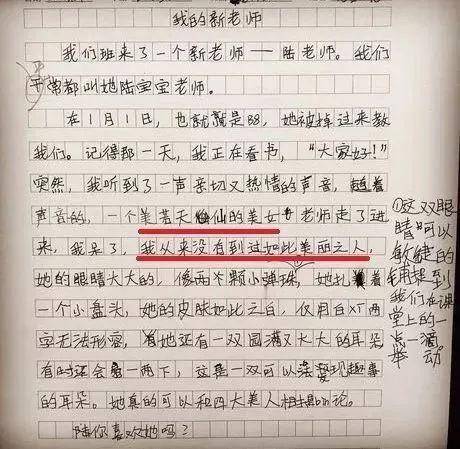 我的新老师
我们班来了一个新老师——陆老师。我们
平常都叫她陆宝宝老师。
在1月1日，也就是BB，她被掉过来教
我们。记得那一天，我正在看书，“大家好！”
突然，我听到了一声亲切又热情的声音，趁着
声音的，一个美若天仙的美女老师走了进
来，我呆了，我从来没有到过如此美丽之人，
她的眼睛大大的，像两个颗小弹珠，她扎着
一个小盘头，她的皮肤如此之白，仅用白XT两
字无法形容，有她还有一双圆满又大大的耳朵
有时还会一两下，这是一双可以发现趣事
的耳朵。她真的可以和四大美人相提论。
陆你喜欢她吗？
①这双眼
睛可以
敏捷的
捕捉到
我们在课
堂上的一
点一滴。
举动